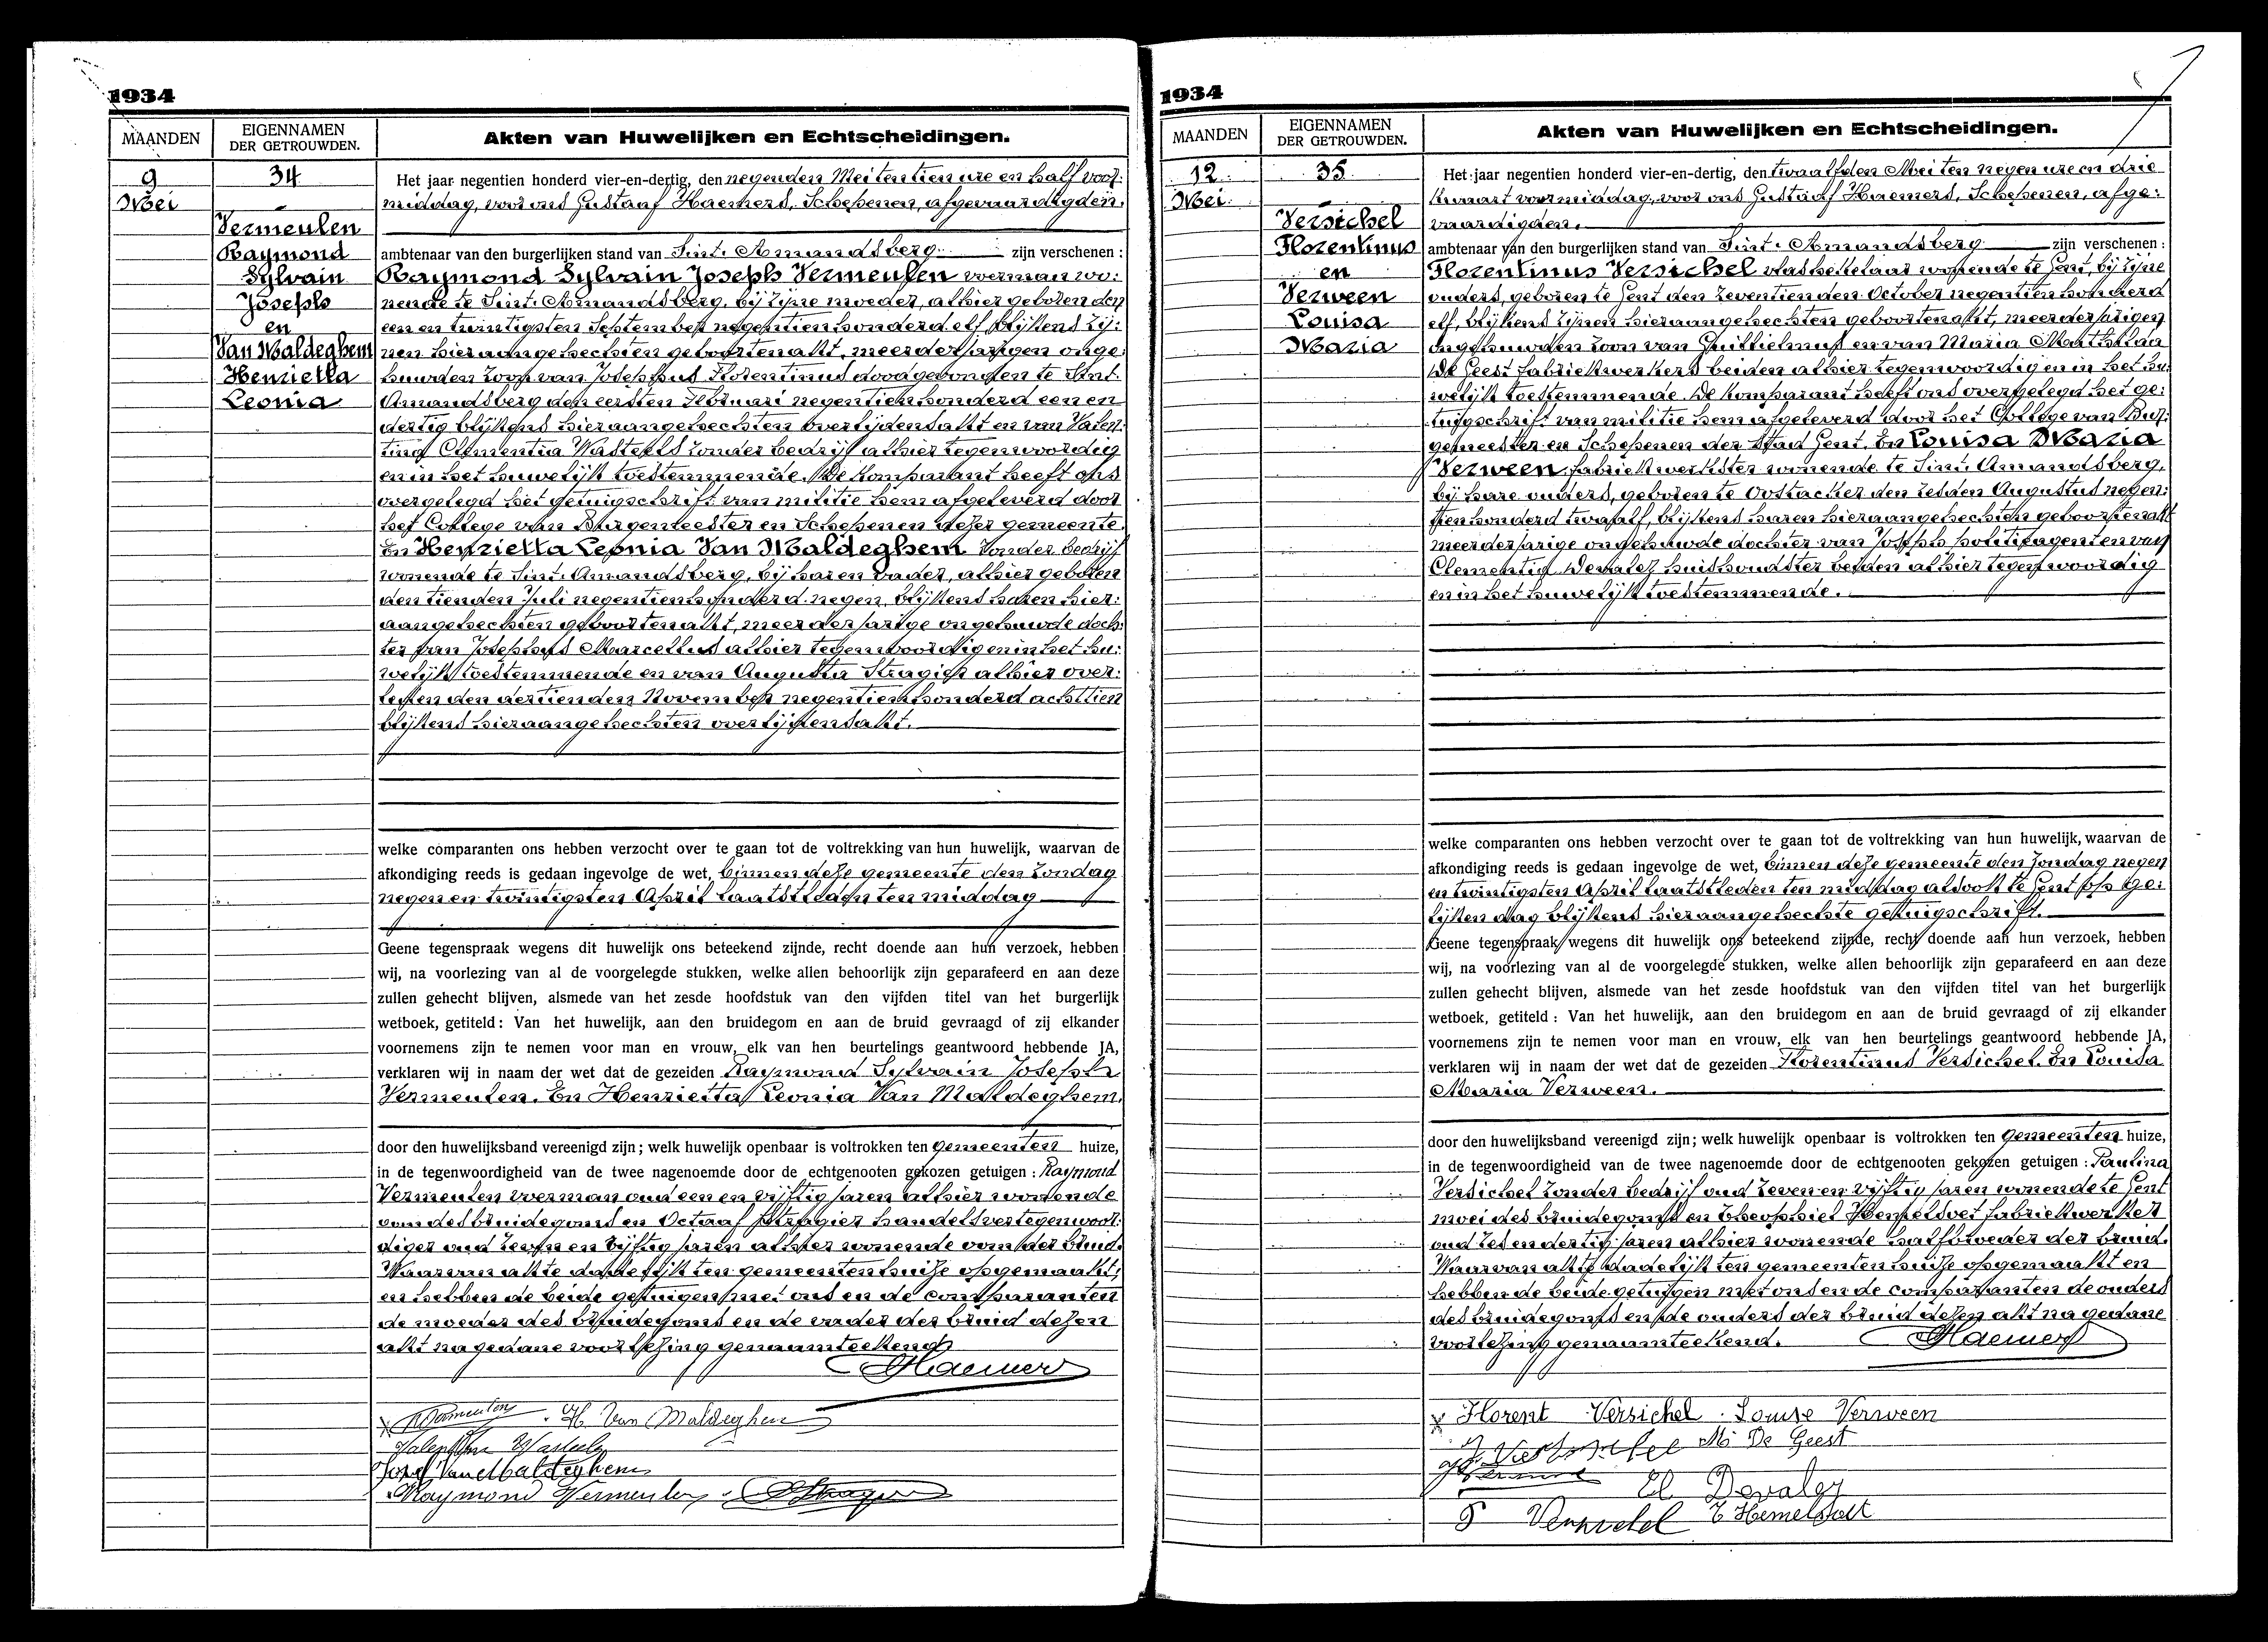 1934
MAANDEN
EIGENNAMEN
DER GETROUWDEN.
Akten van Huwelijken en Echtscheidingen.
9
Mei
34
Vermeulen
Raymond
Sylvain
Joseph
en
Van Maldeghem
Henrietta
Leonia
Het jaar negentien honderd vier-en-dertig, den negenden Mei ten tien ure en half voor:
middag, voor ons Gustaaf Haemers, Schepenen, afgevaardigden,
ambtenaar van den burgerlijken stand van Sint-Amandsberg zijn verschenen :
Raymond Sylvain Joseph Vermeulen voerman wo:
nende te Sint-Amandsberg, bij zijne moeder, alhier geboren den
een en twintigsten September negentien honderd elf blijkens zij:
nen hieraangehechten geboortenakt, meerderjarigen onge:
huwden zoon van Josephus Florentinus dood gevonden te Sint-
Amandsberg den eersten Februari negentien honderd een en
dertig blijkens hieraangehechten overlijdensakt en van Valen:
tina Clementia Wasteels zonder bedrijf alhier tegenwoordig
en in het huwelijk toestemmende. De komparant heeft ons
overgelegd het getuigschrift van militie hem afgeleverd door
het College van Burgemeester en Schepenen dezer gemeente.
En Henrietta Leonia Van Maldeghem zonder bedrijf
wonende te Sint-Amandsberg, bij haren vader, alhier geboren
den tienden Juli negentien honderd negen, blijkens haren hier:
aangehechten geboortenakt, meerderjarige ongehuwde doch:
ter van Josephus Marcellus alhier tegenwoordig en in het hu:
welijk toestemmende en van Augusta Stragier alhier over:
leden den dertienden November negentien honderd achttien
blijkens hieraangehechten overlijdensakt.
welke comparanten ons hebben verzocht over te gaan tot de voltrekking van hun huwelijk, waarvan de
afkondiging reeds is gedaan ingevolge de wet, binnen deze gemeente den Zondag
negen en twintigsten April laatstleden ten middag
Geene tegenspraak wegens dit huwelijk ons beteekend zijnde, recht doende aan hun verzoek, hebben
wij, na voorlezing van al de voorgelegde stukken, welke allen behoorlijk zijn geparafeerd en aan deze
zullen gehecht blijven, alsmede van het zesde hoofdstuk van den vijfden titel van het burgerlijk
wetboek, getiteld : Van het huwelijk, aan den bruidegom en aan de bruid gevraagd of zij elkander
voornemens zijn te nemen voor man en vrouw, elk van hen beurtelings geantwoord hebbende JA,
verklaren wij in naam der wet dat de gezeiden Raymond Sylvain Joseph
Vermeulen. En Henrietta Leonia Van Maldeghem.
door den huwelijksband vereenigd zijn; welk huwelijk openbaar is voltrokken ten gemeenten huize,
in de tegenwoordigheid van de twee nagenoemde door de echtgenooten gekozen getuigen : Raymond
Vermeulen voerman oud een en vijftig jaren alhier wonende
oom des bruidegoms en Octaaf Stragier handelsvertegenwoor:
diger oud zeven en vijftig jaren alhier wonende oom der bruid.
Waarvan akte dadelijk ten gemeenten huize opgemaakt,
en hebben de beide getuigen met ons en de comparanten
de moeder des bruidegoms en de vader der bruid dezen
akt na gedane voorlezing genaamteekend
Haemers
R Vermeulen . H. Van Maldeghem
Valentine Wasteels
Jozef Van Maldeghem
Raymond Vermeulen . O Stragier
1934
MAANDEN
EIGENNAMEN
DER GETROUWDEN.
Akten van Huwelijken en Echtscheidingen.
12
Mei
35
Versichel
Florentinus
en
Verween
Louisa
Maria
Het jaar negentien honderd vier-en-dertig, den twaalfden Mei ten negen ure en drie
kwaart voormiddag, voor ons Gustaaf Haemers, Schepenen, afge:
vaardigden,
ambtenaar van den burgerlijken stand van Sint-Amandsberg zijn verschenen :
Florentinus Versichel vlashekelaar wonende te Gent, bij zijne
ouders, geboren te Gent den zeventienden October negentien honderd
elf, blijkens zijnen hieraangehechten geboortenakt, meerderjarigen
ongehuwden zoon van Guillielmus en van Maria Mathilda
De Geest fabriekwerkers beiden alhier tegenwoordig en in het hu:
welijk toestemmende. De komparant heeft ons overgelegd het ge:
tuigschrift van militie hem afgeleverd door het College van Bur:
gemeester en Schepenen der Stad Gent. En Louisa Maria
Verween fabriekwerkster wonende te Sint-Amandsberg,
bij hare ouders, geboren te Oostacker den zesden Augustus negen:
tien honderd twaalf, blijkens haren hieraangehechten geboortenakt
meerderjarige ongehuwde dochter van Joseph politieagent en van
Clementia Devaler huishoudster beiden alhier tegenwoordig
en in het huwelijk toestemmende.
welke comparanten ons hebben verzocht over te gaan tot de voltrekking van hun huwelijk, waarvan de
afkondiging reeds is gedaan ingevolge de wet, binnen deze gemeente den Zondag negen
en twintigsten April laatstleden ten middag alsook te Gent op ge:
lijken dag blijkens hieraangehechte getuigschrift.
Geene tegenspraak wegens dit huwelijk ons beteekend zijnde, recht doende aan hun verzoek, hebben
wij, na voorlezing van al de voorgelegde stukken, welke allen behoorlijk zijn geparafeerd en aan deze
zullen gehecht blijven, alsmede van het zesde hoofdstuk van den vijfden titel van het burgerlijk
wetboek, getiteld : Van het huwelijk, aan den bruidegom en aan de bruid gevraagd of zij elkander
voornemens zijn te nemen voor man en vrouw, elk van hen beurtelings geantwoord hebbende JA,
verklaren wij in naam der wet dat de gezeiden Florentinus Versichel. En Louisa
Maria Verween.
door den huwelijksband vereenigd zijn; welk huwelijk openbaar is voltrokken ten gemeenten huize,
in de tegenwoordigheid van de twee nagenoemde door de echtgenooten gekozen getuigen : Paulina
Versichel zonder bedrijf oud zeven en vijftig jaren wonende te Gent
moei des bruidegoms en Theophiel Hemelsoet fabriekwerker
oud zes en dertig jaren alhier wonende halfbroeder der bruid.
Waarvan akte dadelijk ten gemeenten huize opgemaakt en
hebben de beide getuigen met ons en de comparanten de ouders
des bruidegoms en de ouders der bruid dezen akt na gedane
voorlezing genaamteekend.
Haemers
Florent Versichel . Louise Verween
Versichel Mi De Geest
Cl. Devaler
P Versichel T Hemelsoet